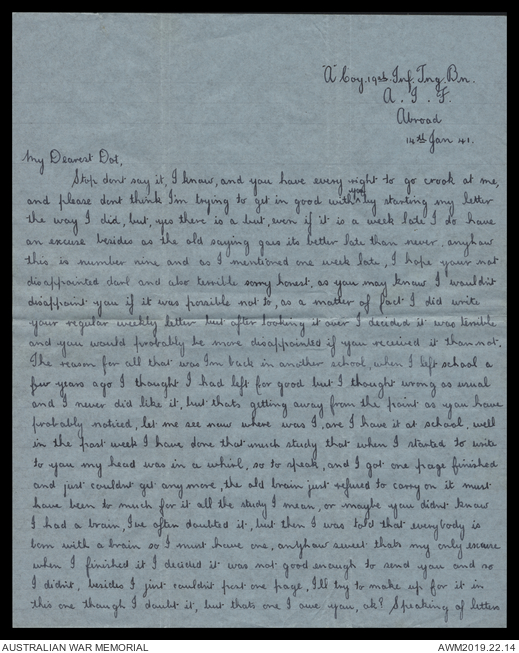 "A" Coy. 19th Inf. Tng. Bn.
A. I. F.
Abroad
14th Jan 41.
My Dearest Dot,
Stop dont say it, I know, and you have every right to go crook at me,
and please dont think I'm trying to get in good with you by starting my letter
the way I did, but, yes there is a but, even if it is a week late I do have
an excuse besides as the old saying goes its better late than never. anyhow
this is number nine and as I mentioned one week late, I hope your not
disappointed darl and also terrible sorry honest, as you may know I wouldn't
disappoint you if it was possible not to, as a matter of fact I did write
your regular weekly letter but after looking it over I decided it was terrible
and you would probably be more disappointed if you received it than not.
The reason for all that was I'm back in another school, when I left school a
few years ago I thought I had left for good but I thought wrong as usual
and I never did like it, but thats getting away from the point as you have
probably noticed, let me see now where was I, are I have it at school, well
in the past week I have done that much study that when I started to write
to you my head was in a whirl, so to speak, and I got one page finished
and just couldnt get any more, the old brain just refused to carry on it must
have been to much for it all the study I mean, or maybe you didnt know
I had a brain, I've often doubted it, but then I was told that everybody is
born with a brain so I must have one, anyhow sweet thats my only excuse
when I finished it I decided it was not good enough to send you and so
I didn't, besides I just couldn't post one page, I'll try to make up for it in
this one though I doubt it, but thats one I owe you, ok? Speaking of letters
AUSTRALIAN WAR MEMORIAL
AWM2019.22.14